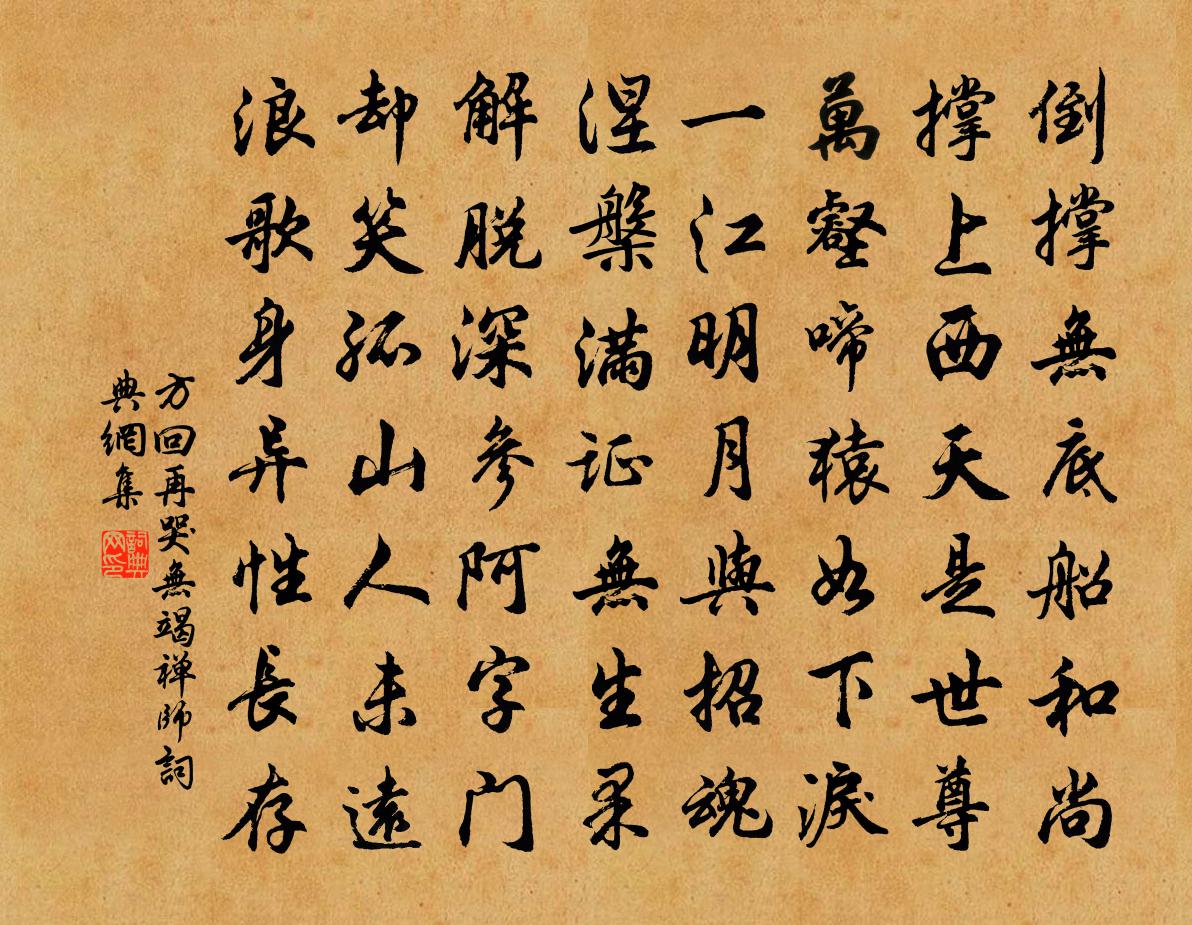 倒撐無底船和尚
撐上西天是世尊
萬壑啼猿如下淚
一江明月與招魂
涅槃滿证無生果
解脱深參阿字門
却笑孤山人未遠
浪歌身异性長存
方回再哭無竭禅師詞
典網集
詞典网印